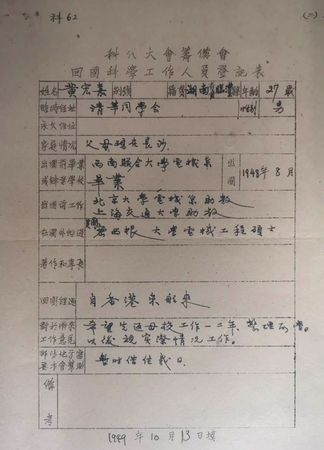 科 62
科代大會籌備會
回國科學工作人員登記表
姓名 黄宏嘉 別號 籍貫 湖南臨澧縣 年齡 27歲
臨時住址 清華同學會 性別 男
永久住址
家庭情况 父母現在長沙
出國前畢業或肄業學校 西南聯合大學電機系 畢業 出國 1948年8月
出國前工作 北京大學電機系助教
上海交通大學助教
在國外 美國密西根大學電機工程碩士
著作和專長
回國經過 自香港乘船來
對於 工作意見 希望先返母校工作一二年,整理所學。
以後視實際情況工作。
暫時借住裁日
備考
1949年10月13日填